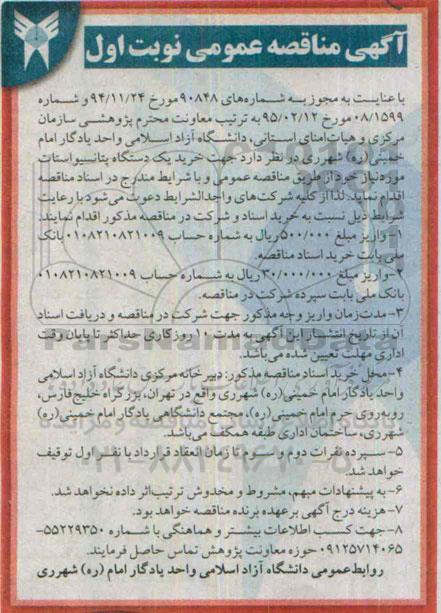 آگهی مناقصه عمومی نوبت اول
با عنایت به مجوز به شماره‌های ۹۰۸۴۸ مورخ ۹۴/۱۱/۲۴ و شماره
۰۸/۱۵۹۹ مورخ ۹۵/۰۲/۱۲ به ترتیب معاونت محترم پژوهشی سازمان
مرکزی و هیات‌امنای استانی، دانشگاه آزاد اسلامی واحد یادگار امام
خمینی(ره) شهرری در نظر دارد جهت خرید یک دستگاه پتانسیواستات
مورد نیاز خود از طریق مناقصه عمومی و با شرایط مندرج در اسناد مناقصه
اقدام نماید. لذا از کلیه شرکت‌های واجدالشرایط دعوت می‌شود با رعایت
شرایط ذیل نسبت به خرید اسناد و شرکت در مناقصه مذکور اقدام نمایند.
۱-واریز مبلغ ۵۰۰/۰۰۰ ریال به شماره حساب ۰۱۰۸۲۱۰۸۲۱۰۰۹ بانک
ملی بابت خرید اسناد مناقصه.
۲-واریز مبلغ ۳۰/۰۰۰/۰۰۰ ریال به شماره حساب ۰۱۰۸۲۱۰۸۲۱۰۰۹
بانک ملی بابت سپرده شرکت در مناقصه.
۳-مدت‌زمان واریز وجه مذکور جهت شرکت در مناقصه و دریافت اسناد
آن از تاریخ انتشار این آگهی به مدت ۱۰ روز کاری حداکثر تا پایان وقت
اداری مهلت تعیین شده می‌باشد.
۴-محل خرید اسناد مناقصه مذکور: دبیرخانه مرکزی دانشگاه آزاد اسلامی
واحد یادگار امام خمینی(ره) شهرری واقع در تهران، بزرگراه خلیج‌فارس،
روبه‌روی حرم امام خمینی(ره)، مجتمع دانشگاهی یادگار امام خمینی(ره)
شهرری، ساختمان اداری طبقه همکف می‌باشد.
۵-سپرده نفرات دوم و سوم تا زمان انعقاد قرارداد با نفر اول توقیف
خواهد شد.
۶-به پیشنهادات مبهم، مشروط و مخدوش ترتیب‌اثر داده نخواهد شد.
۷-هزینه درج آگهی بر عهده برنده مناقصه خواهد بود.
۸-جهت کسب اطلاعات بیشتر و هماهنگی با شماره ۵۵۲۲۹۳۵۰-
۰۹۱۲۵۷۱۴۰۶۵ حوزه معاونت پژوهش تماس حاصل فرمایند.
روابط‌عمومی دانشگاه آزاد اسلامی واحد یادگار امام (ره) شهرری
ParsNamadData
۰۲۱-۸۸۳۴۹۶۷۰-۵